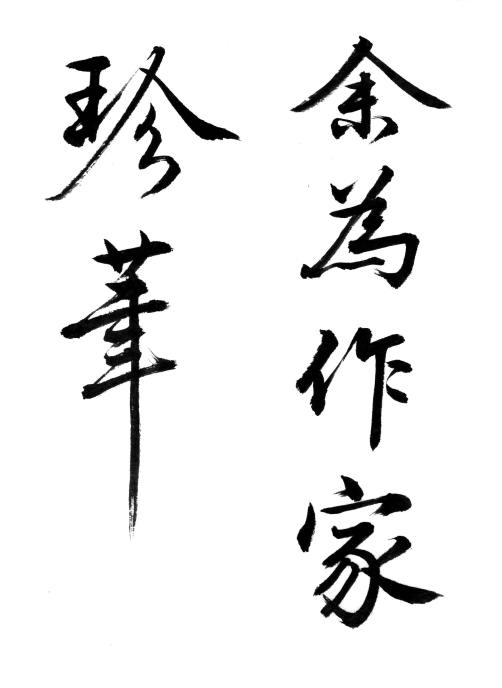 余為作家
珍華